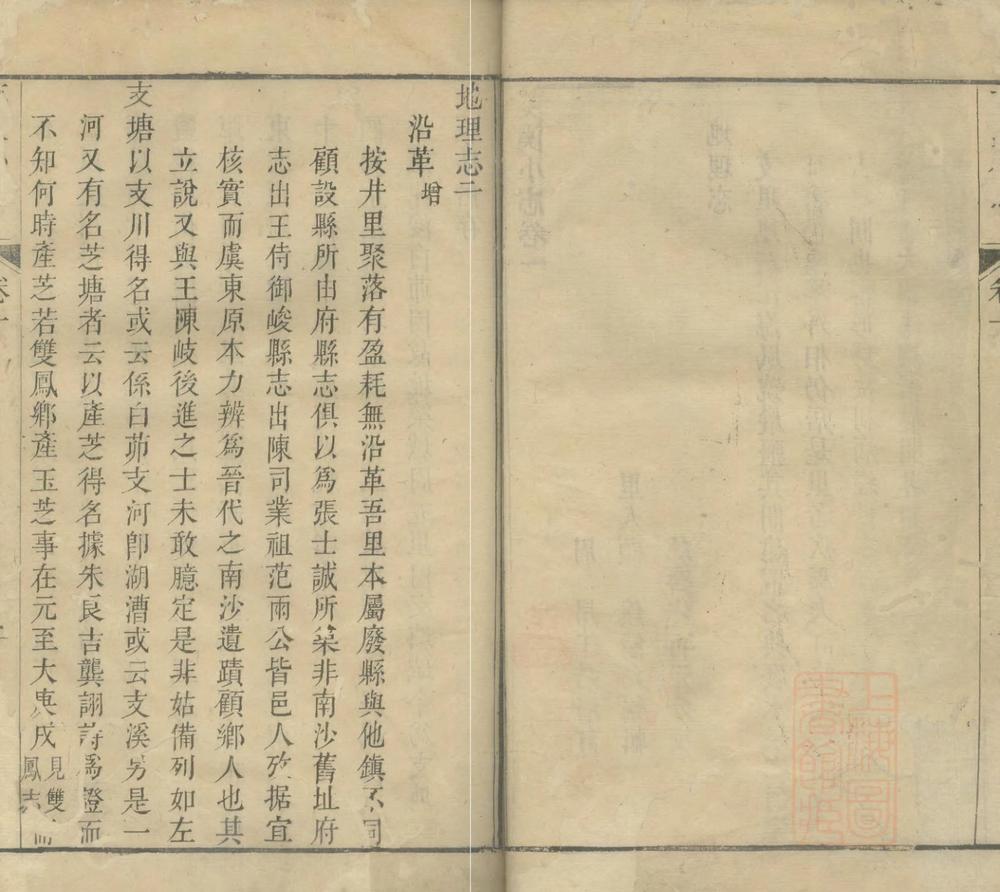 地理志二
沿革 增
按井里聚落有盈耗無沿革吾里本屬廢縣與他鎮不同
顧設縣所由府縣志俱以爲張士誠所築非南沙舊址府
志出王侍御峻縣志出陳司業祖范兩公皆邑人攷据宜
核實而虞東原本力辨爲晉代之南沙遺蹟顧鄉人也其
立說又與王陳歧後進之士未敢臆定是非姑備列如左
支塘以支川得名或云係白茆支河卽湖漕或云支溪另是一
河又有名芝塘者云以產芝得名據朱良吉龔詡詩爲證而
不知何時產芝若雙鳳鄉產玉芝事在元至大庚戌 見雙鳳志